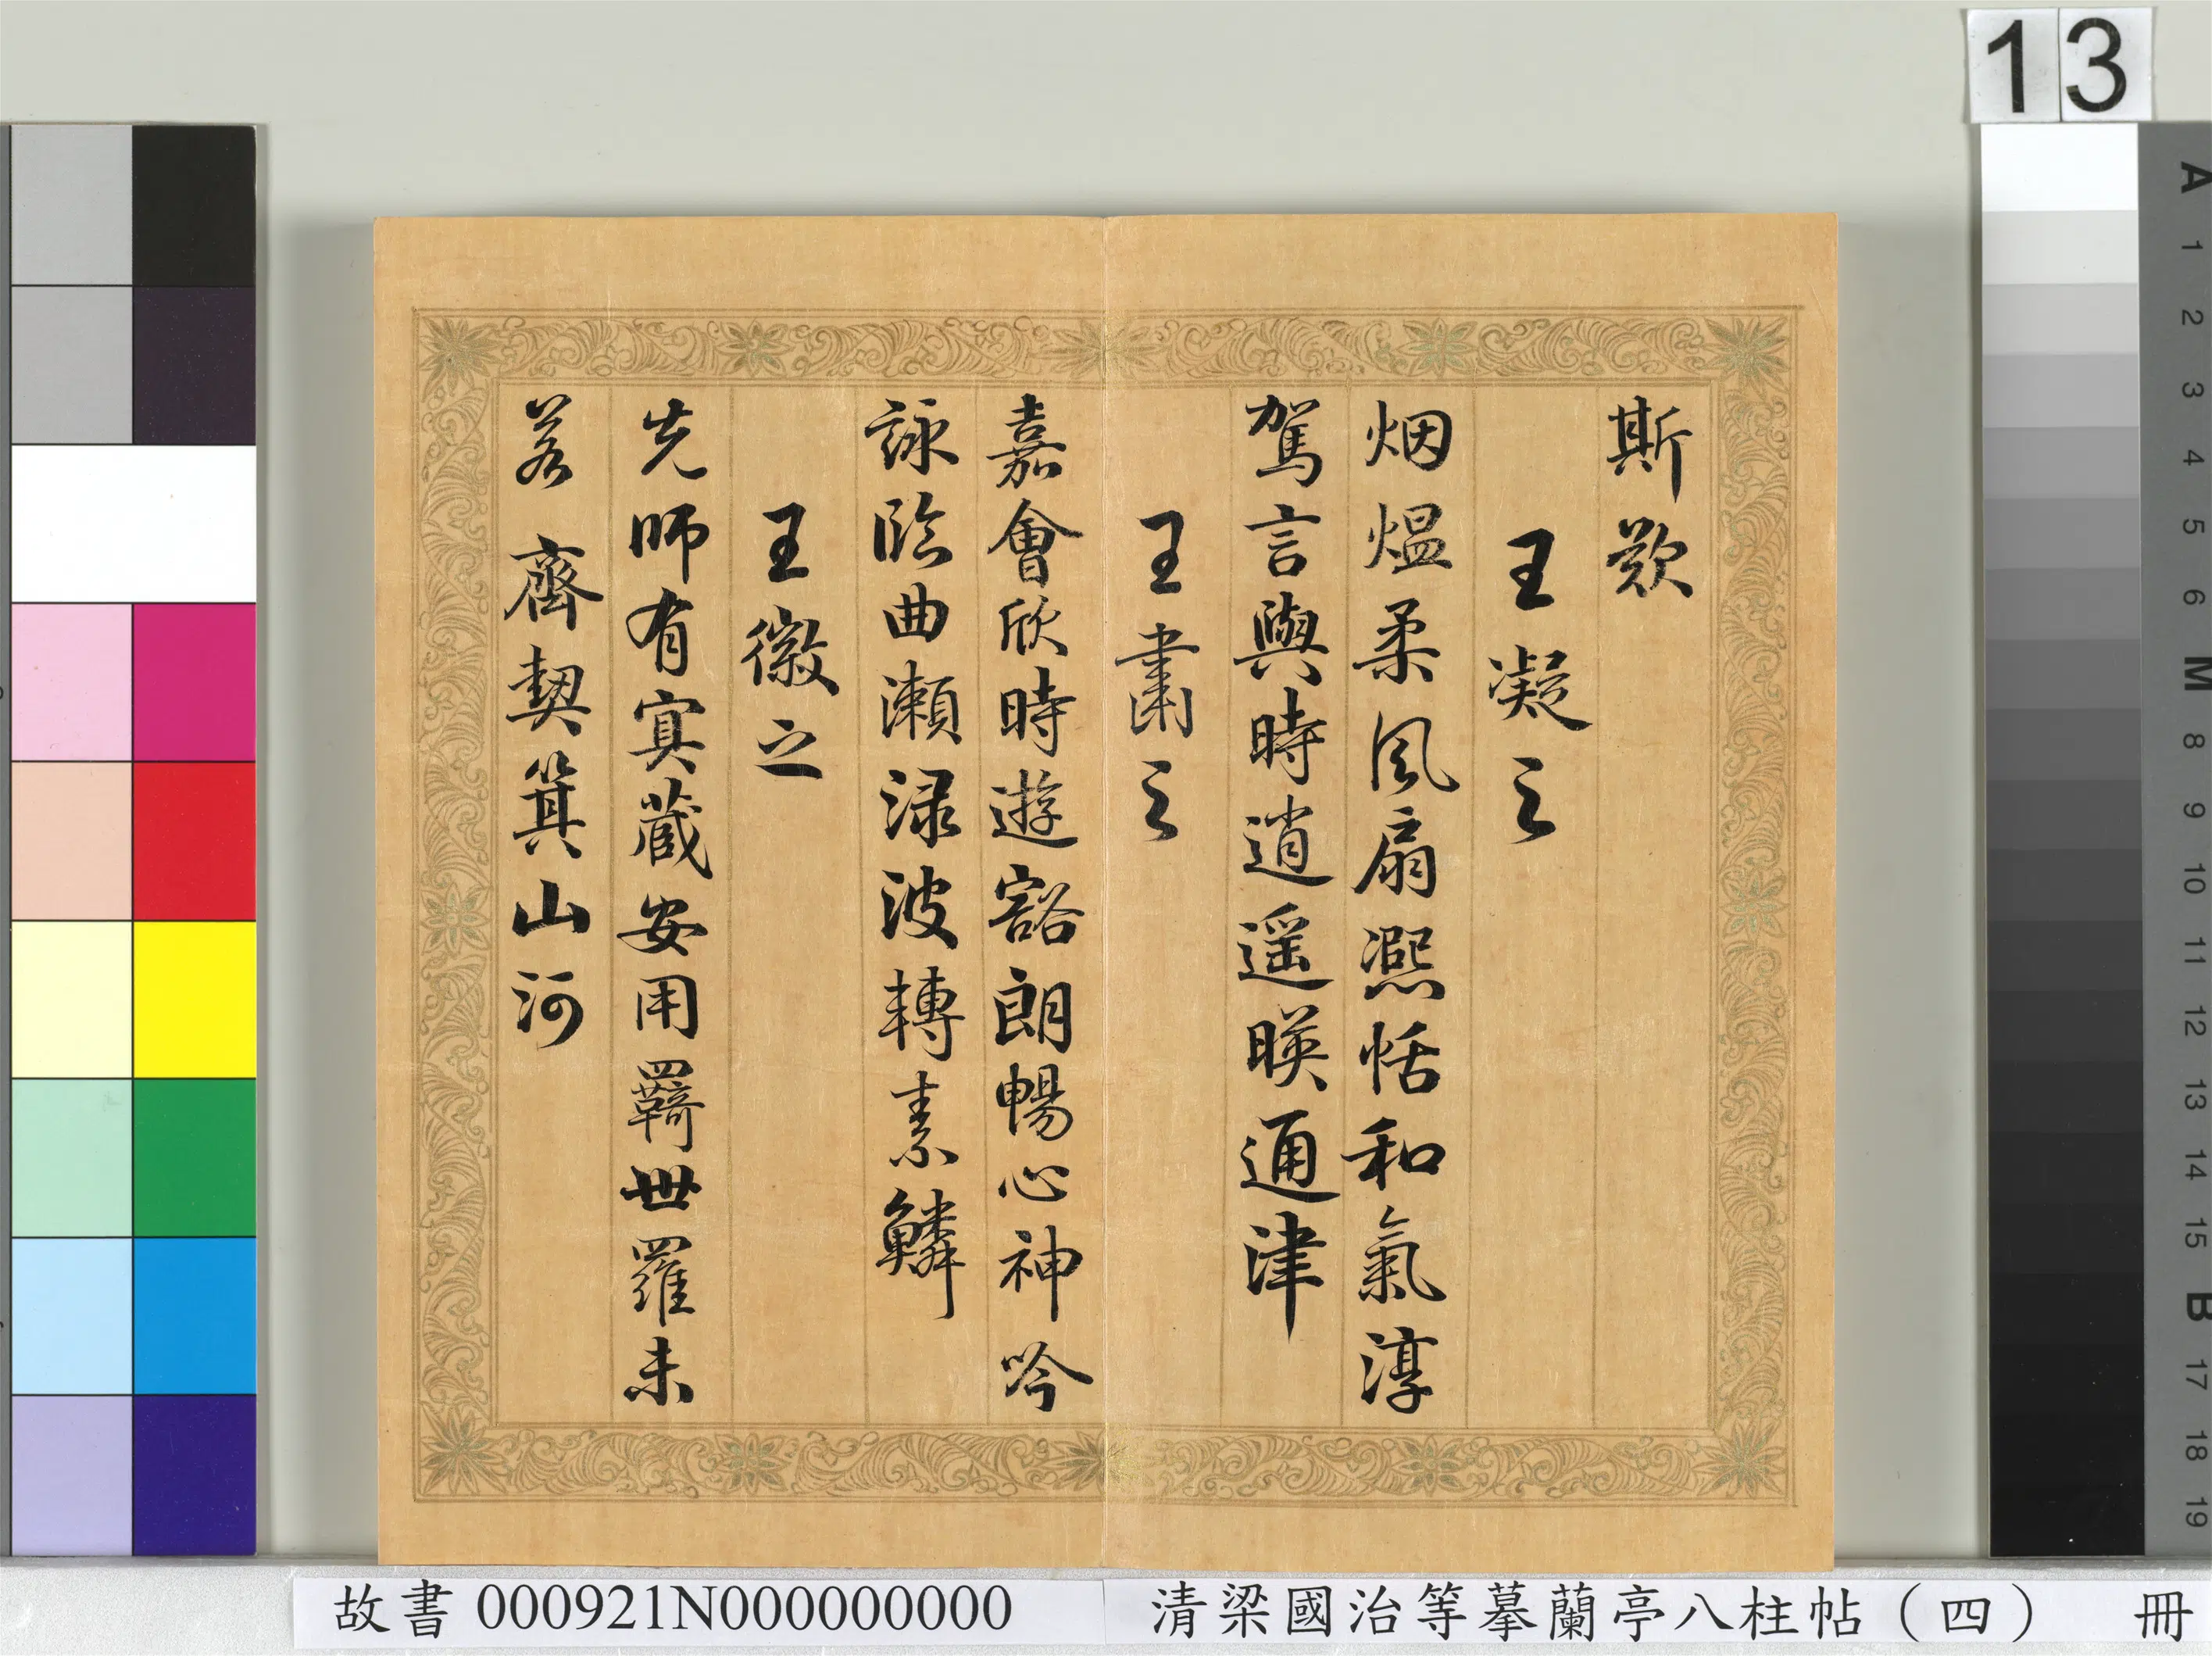 13
斯歎
王凝之
烟煴柔風扇凞恬和氣淳
駕言興時遊逍遥暎通津
王肅之
嘉會欣時遊豁朗暢心神吟
詠臨曲瀨渌波轉素鱗
王徽之
先師有㝠蔵安用羇世羅未
若齊契箕山河
A 1 2 3 4 5 6 M 8 9 10 11 12 13 14 15 B 17 18 19
故書 000921N000000000
清梁國治等摹蘭亭八柱帖（四） 冊